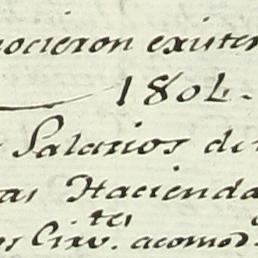 nocieron existen
1804.
Salarios de
as Hacienda
os Civ.tes acomod